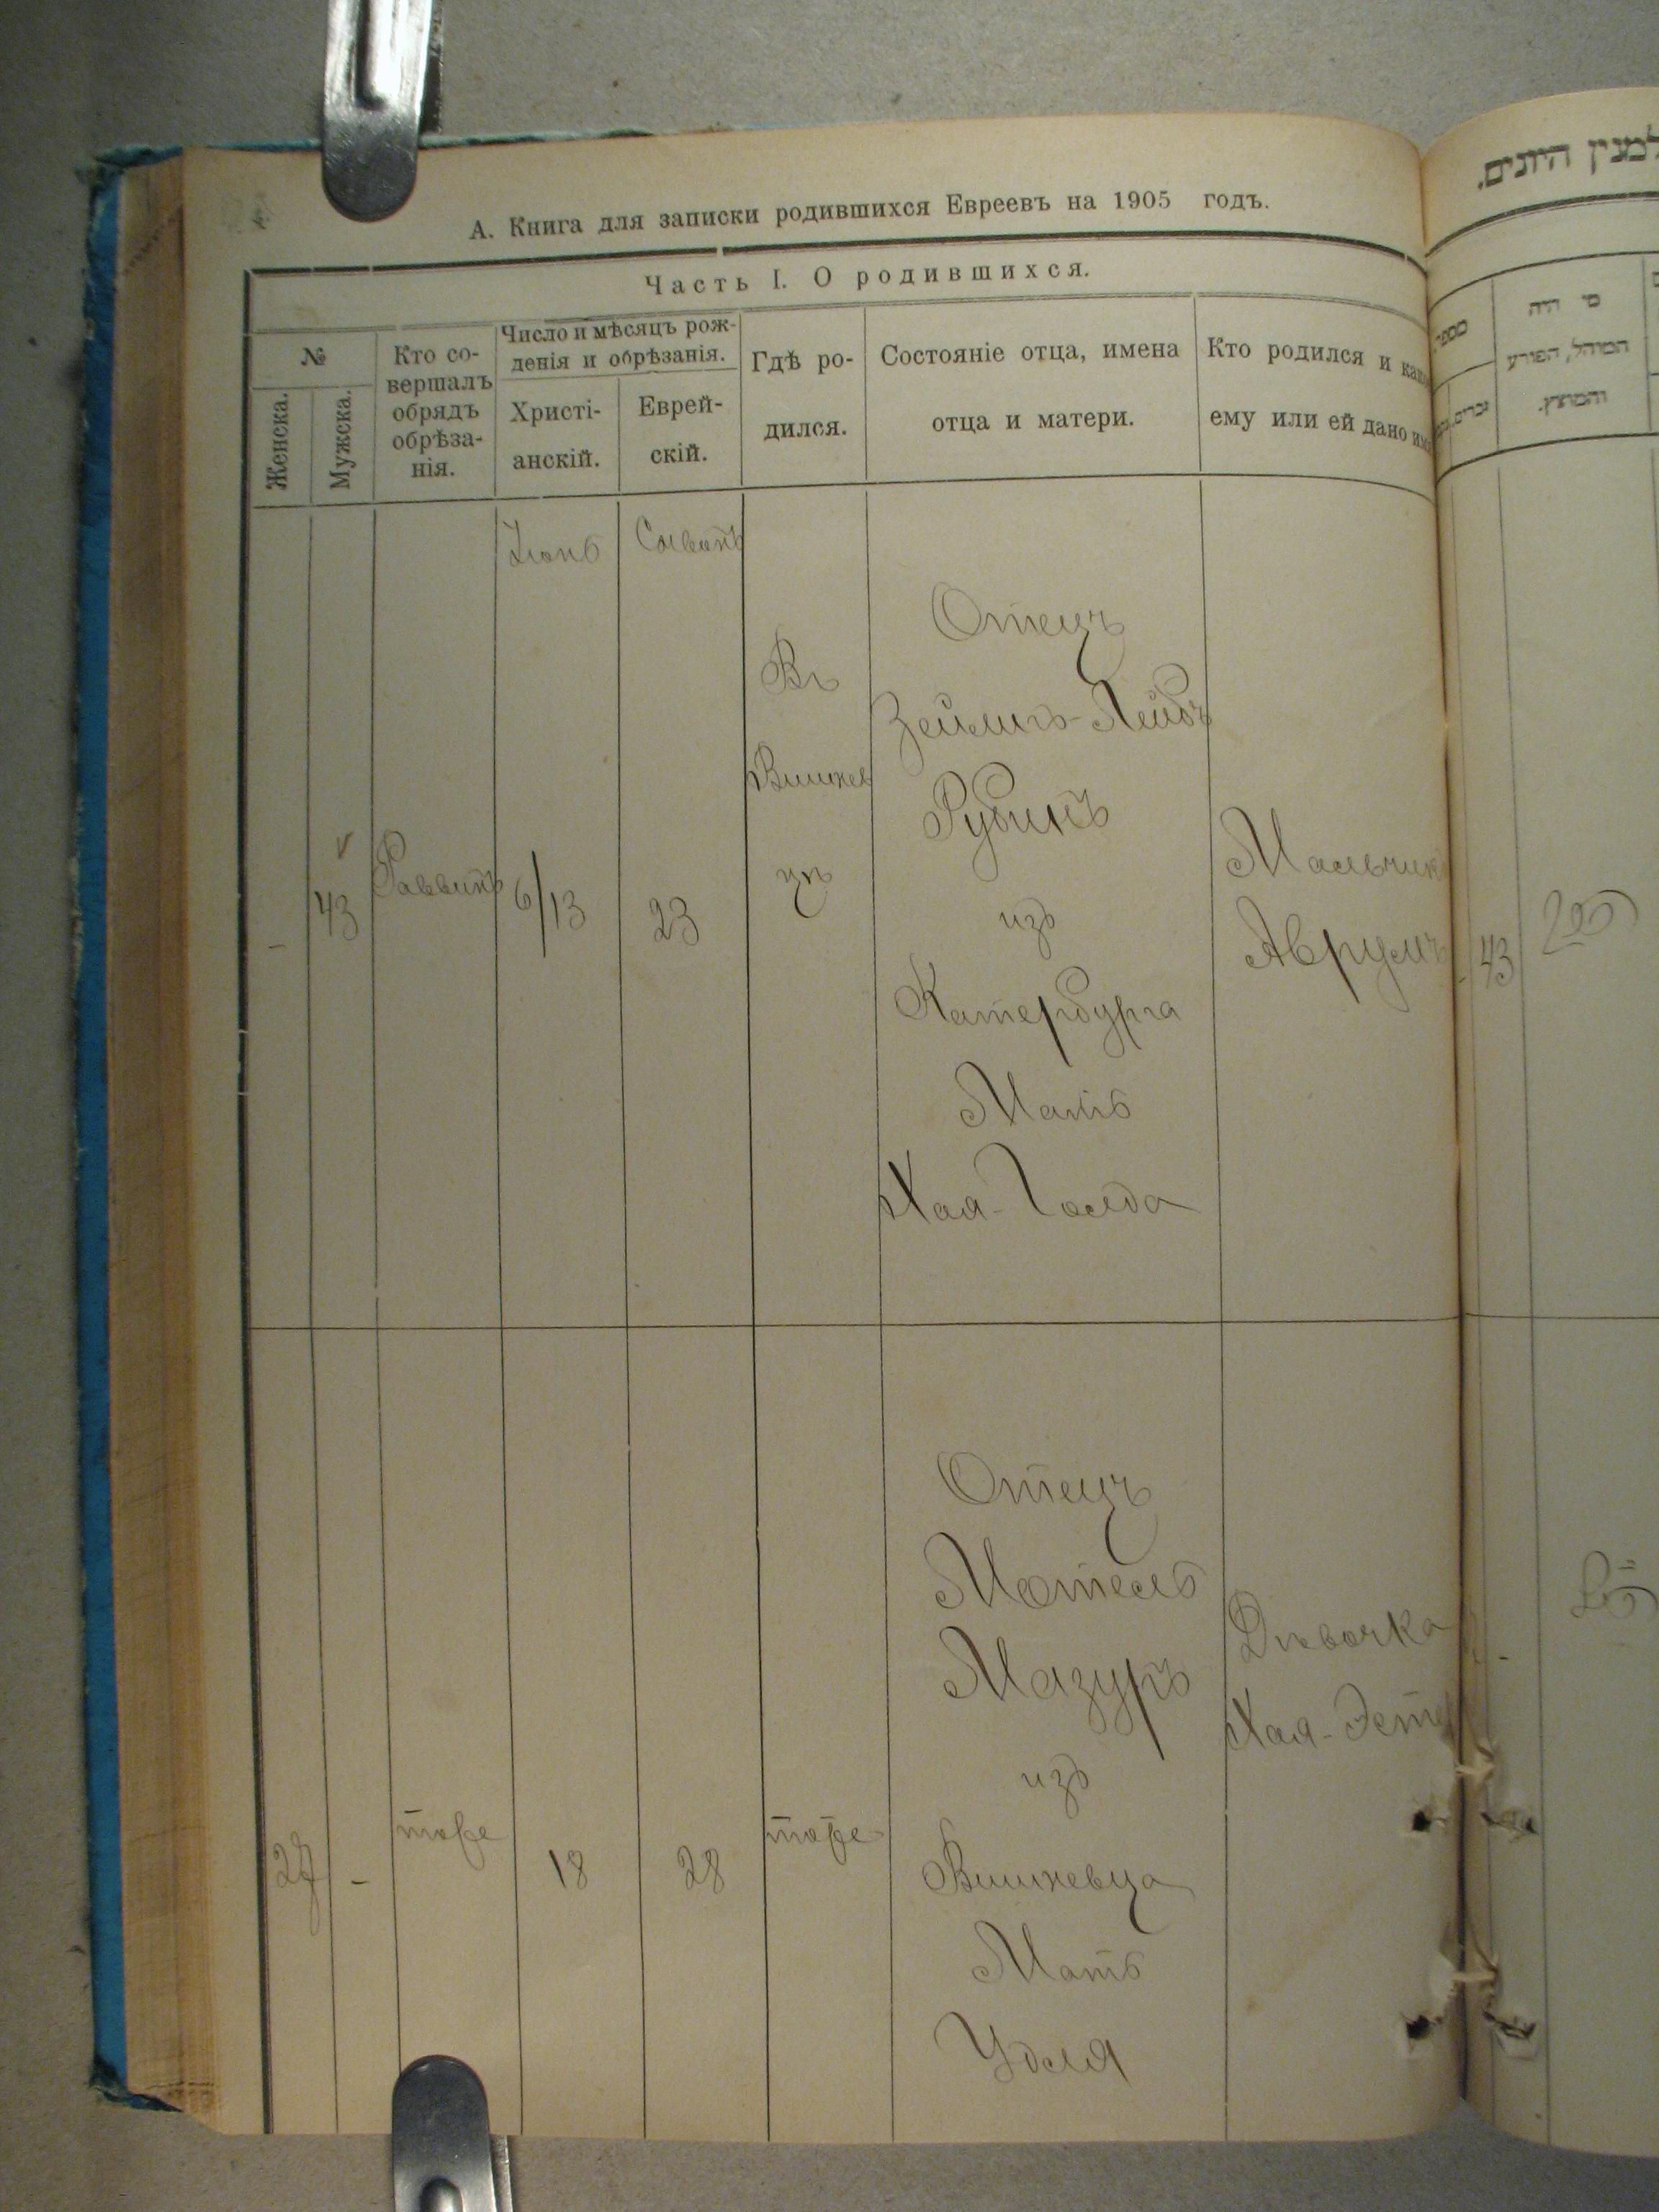 А. Книга для записки родившихся Евреевъ на 1905 годъ.
Часть I. О родившихся.
№
Женска.
Мужска.
Кто со-
вершалъ
обрядъ
обрѣза-
нія.
Число и мѣсяцъ рож-
денія и обрѣзанія.
Христі-
анскій.
Еврей-
скій.
Гдѣ ро-
дился.
Состояніе отца, имена
отца и матери.
Кто родился и како
ему или ей дано им
Іюнь
Сивонъ
-
43
Раввинъ
6/13
23
Въ
Вишнев
цѣ
Отецъ
Зейлигъ-Лейбъ
Рубинъ
изъ
Катербурга
Мать
Хая-Голда
Мальчикъ
Аврумъ
27
-
тоже
18
28
тоже
Отецъ
Мотель
Мазуръ
изъ
Вишневца
Мать
Удля
Дѣвочка
Хая-Эсте
למנין היונים.
מספר
מי היה
המוהל, הפורע
והמוצץ.
43
-